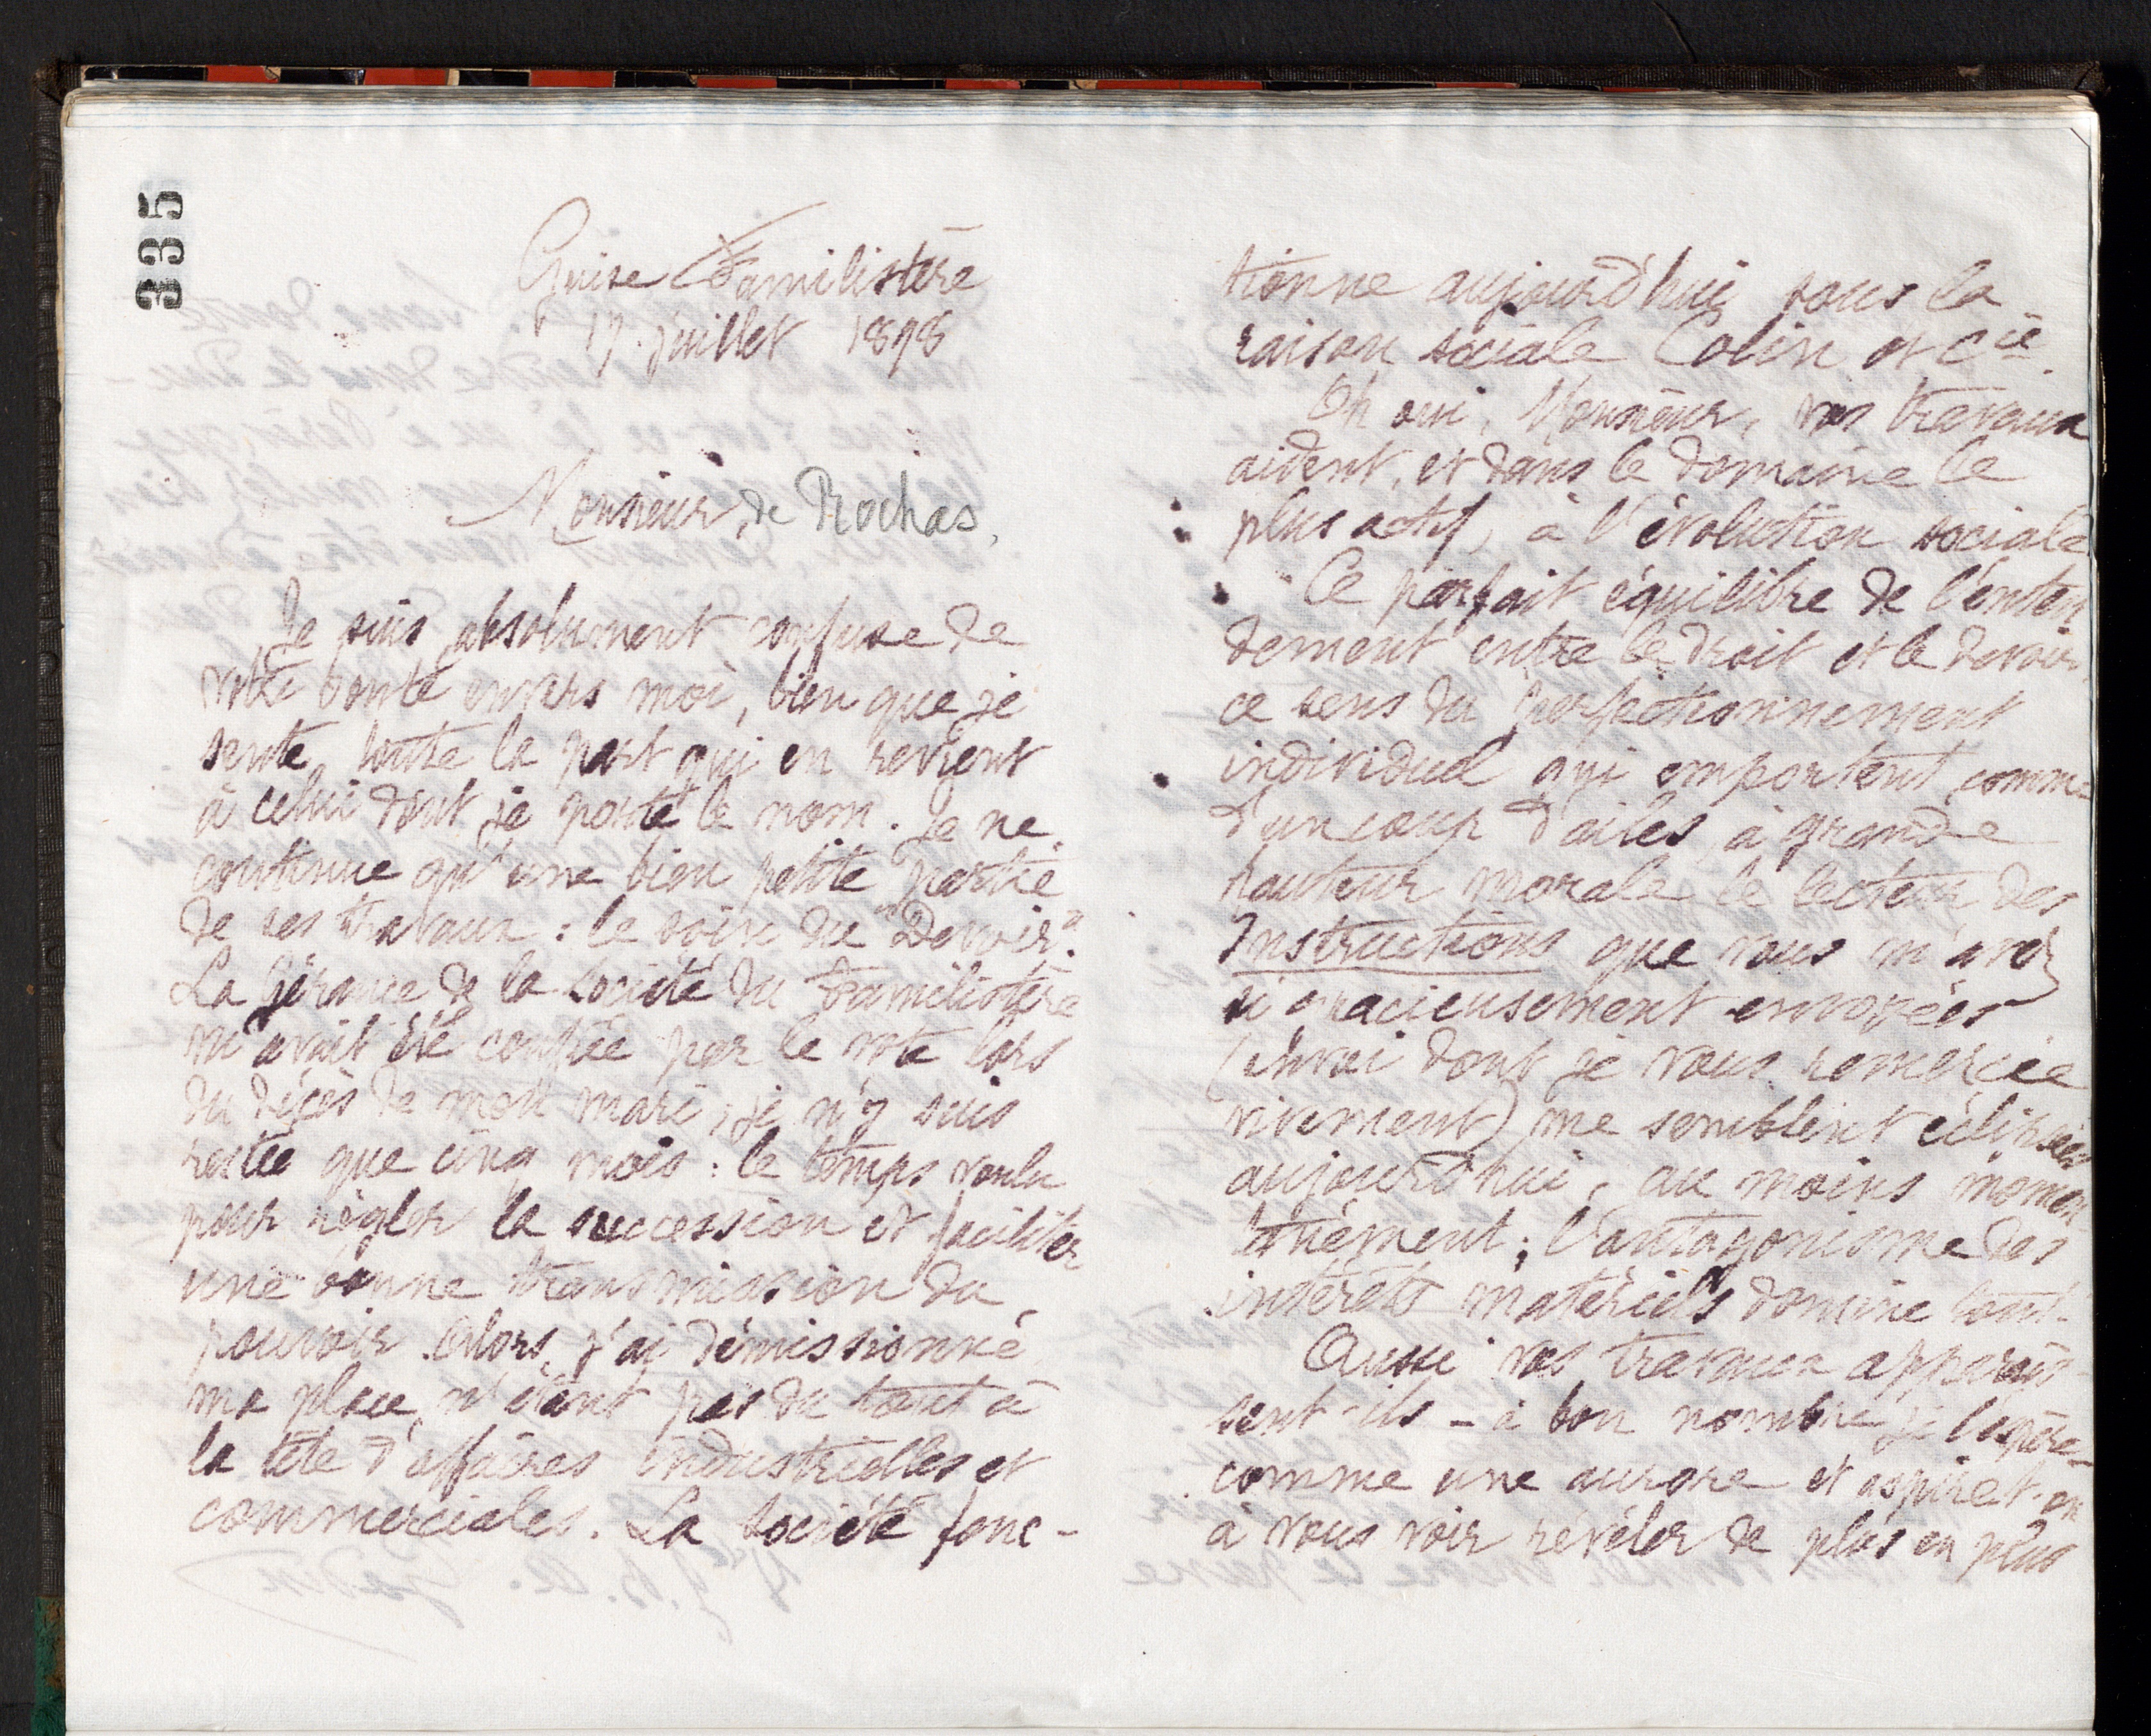 335
Guise Familistère
17 juillet 1898
Monsieur de Rochas,
Je suis absolument confuse de
votre bonté envers moi, bien que je
sente toute la part qui en revient
à celui dont je porte le nom. Je ne
continue qu'une bien petite partie
de ses travaux : le soin du "Devoir".
La Gérance de la Société du Familistère
m'avait été confiée par le vote lors
du décès de mon mari ; je n'y suis
restée que cinq mois : le temps voulu
pour régler la succession et faciliter
une bonne transmission du
pouvoir. Alors, j'ai démissionné
ma place n'étant pas du tout à
la tête d'affaires industrielles et
commerciales. La Société fonc-
tionne aujourd'hui sous la
raison sociale Colin et Cie.
Oh oui, Monsieur, vos travaux
aident, et dans le domaine le
plus actif, à l'évolution sociale
Ce parfait équilibre de l'enten
dement entre le droit et le devoir,
ce sens du perfectionnement
individuel qui emportent comme
d'un coup d'ailes à grande
hauteur morale le lecteur des
Instructions que vous m'avez
si gracieusement envoyées
(envoi dont je vous remercie
vivement) me semblent éclipsées
aujourd'hui, au moins momen
tanément ; l'antagonisme des
intérêts matériels domine tout.
Aussi vos travaux apparais-
sent-ils - à bon nombre je l'espère -
comme une aurore et aspire-t-on
à vous voir révéler de plus en plus